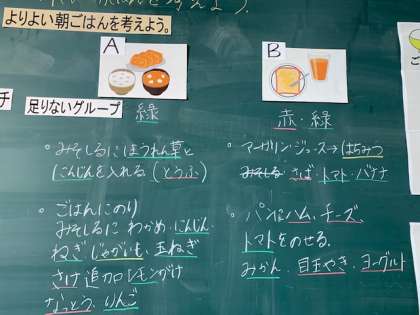 よりよい朝ごはんを考えよう。
A
B
チ
足りないグループ
緑
赤・緑
。みそしるにほうれん草と
にんじんを入れる。(とうふ)
。ごはんにのり
みそしるに わかめ・にんじん・
ねぎ・じゃがいも・玉ねぎ
さけ追加 レモンがけ
なっとう、りんご
。マーガリン・ジュース→はちみつ
みそしる さば・トマト・バナナ
。パンにハム、チーズ、
トマトをのせる。
みかん、目玉やき、ヨーグルト